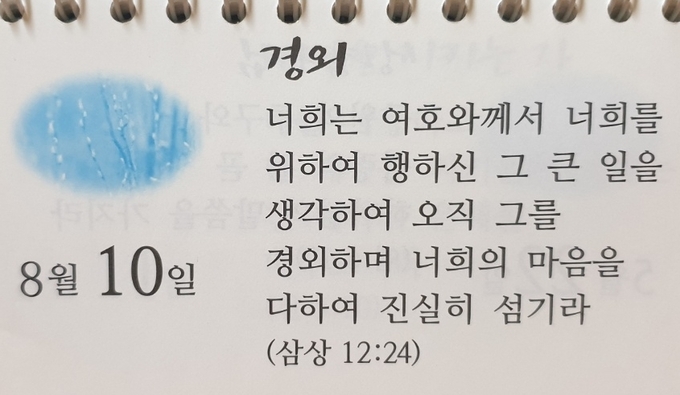 경외
너희는 여호와께서 너희를
위하여 행하신 그 큰 일을
생각하여 오직 그를
경외하며 너희의 마음을
다하여 진실히 섬기라
(삼상 12:24)
8월 10일